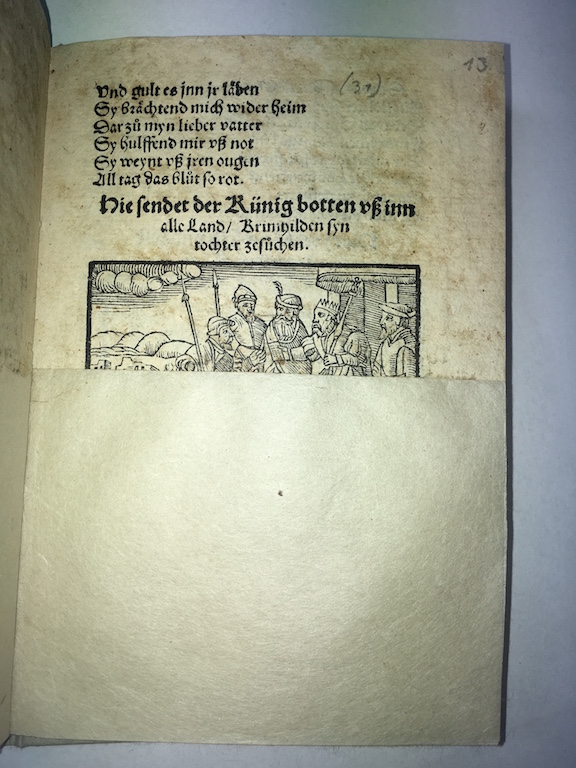 (31)
13
Vnd gult es jnn jr läben
Sy brächtend mich wider heim
Dar zů myn lieber vatter
Sy hulffend mir vß not
Sy weynt vß jren ougen
All tag das blůt so rot.
Hie sendet der Künig botten vß inn
alle Land/ Krimhilden syn
tochter zesůchen.